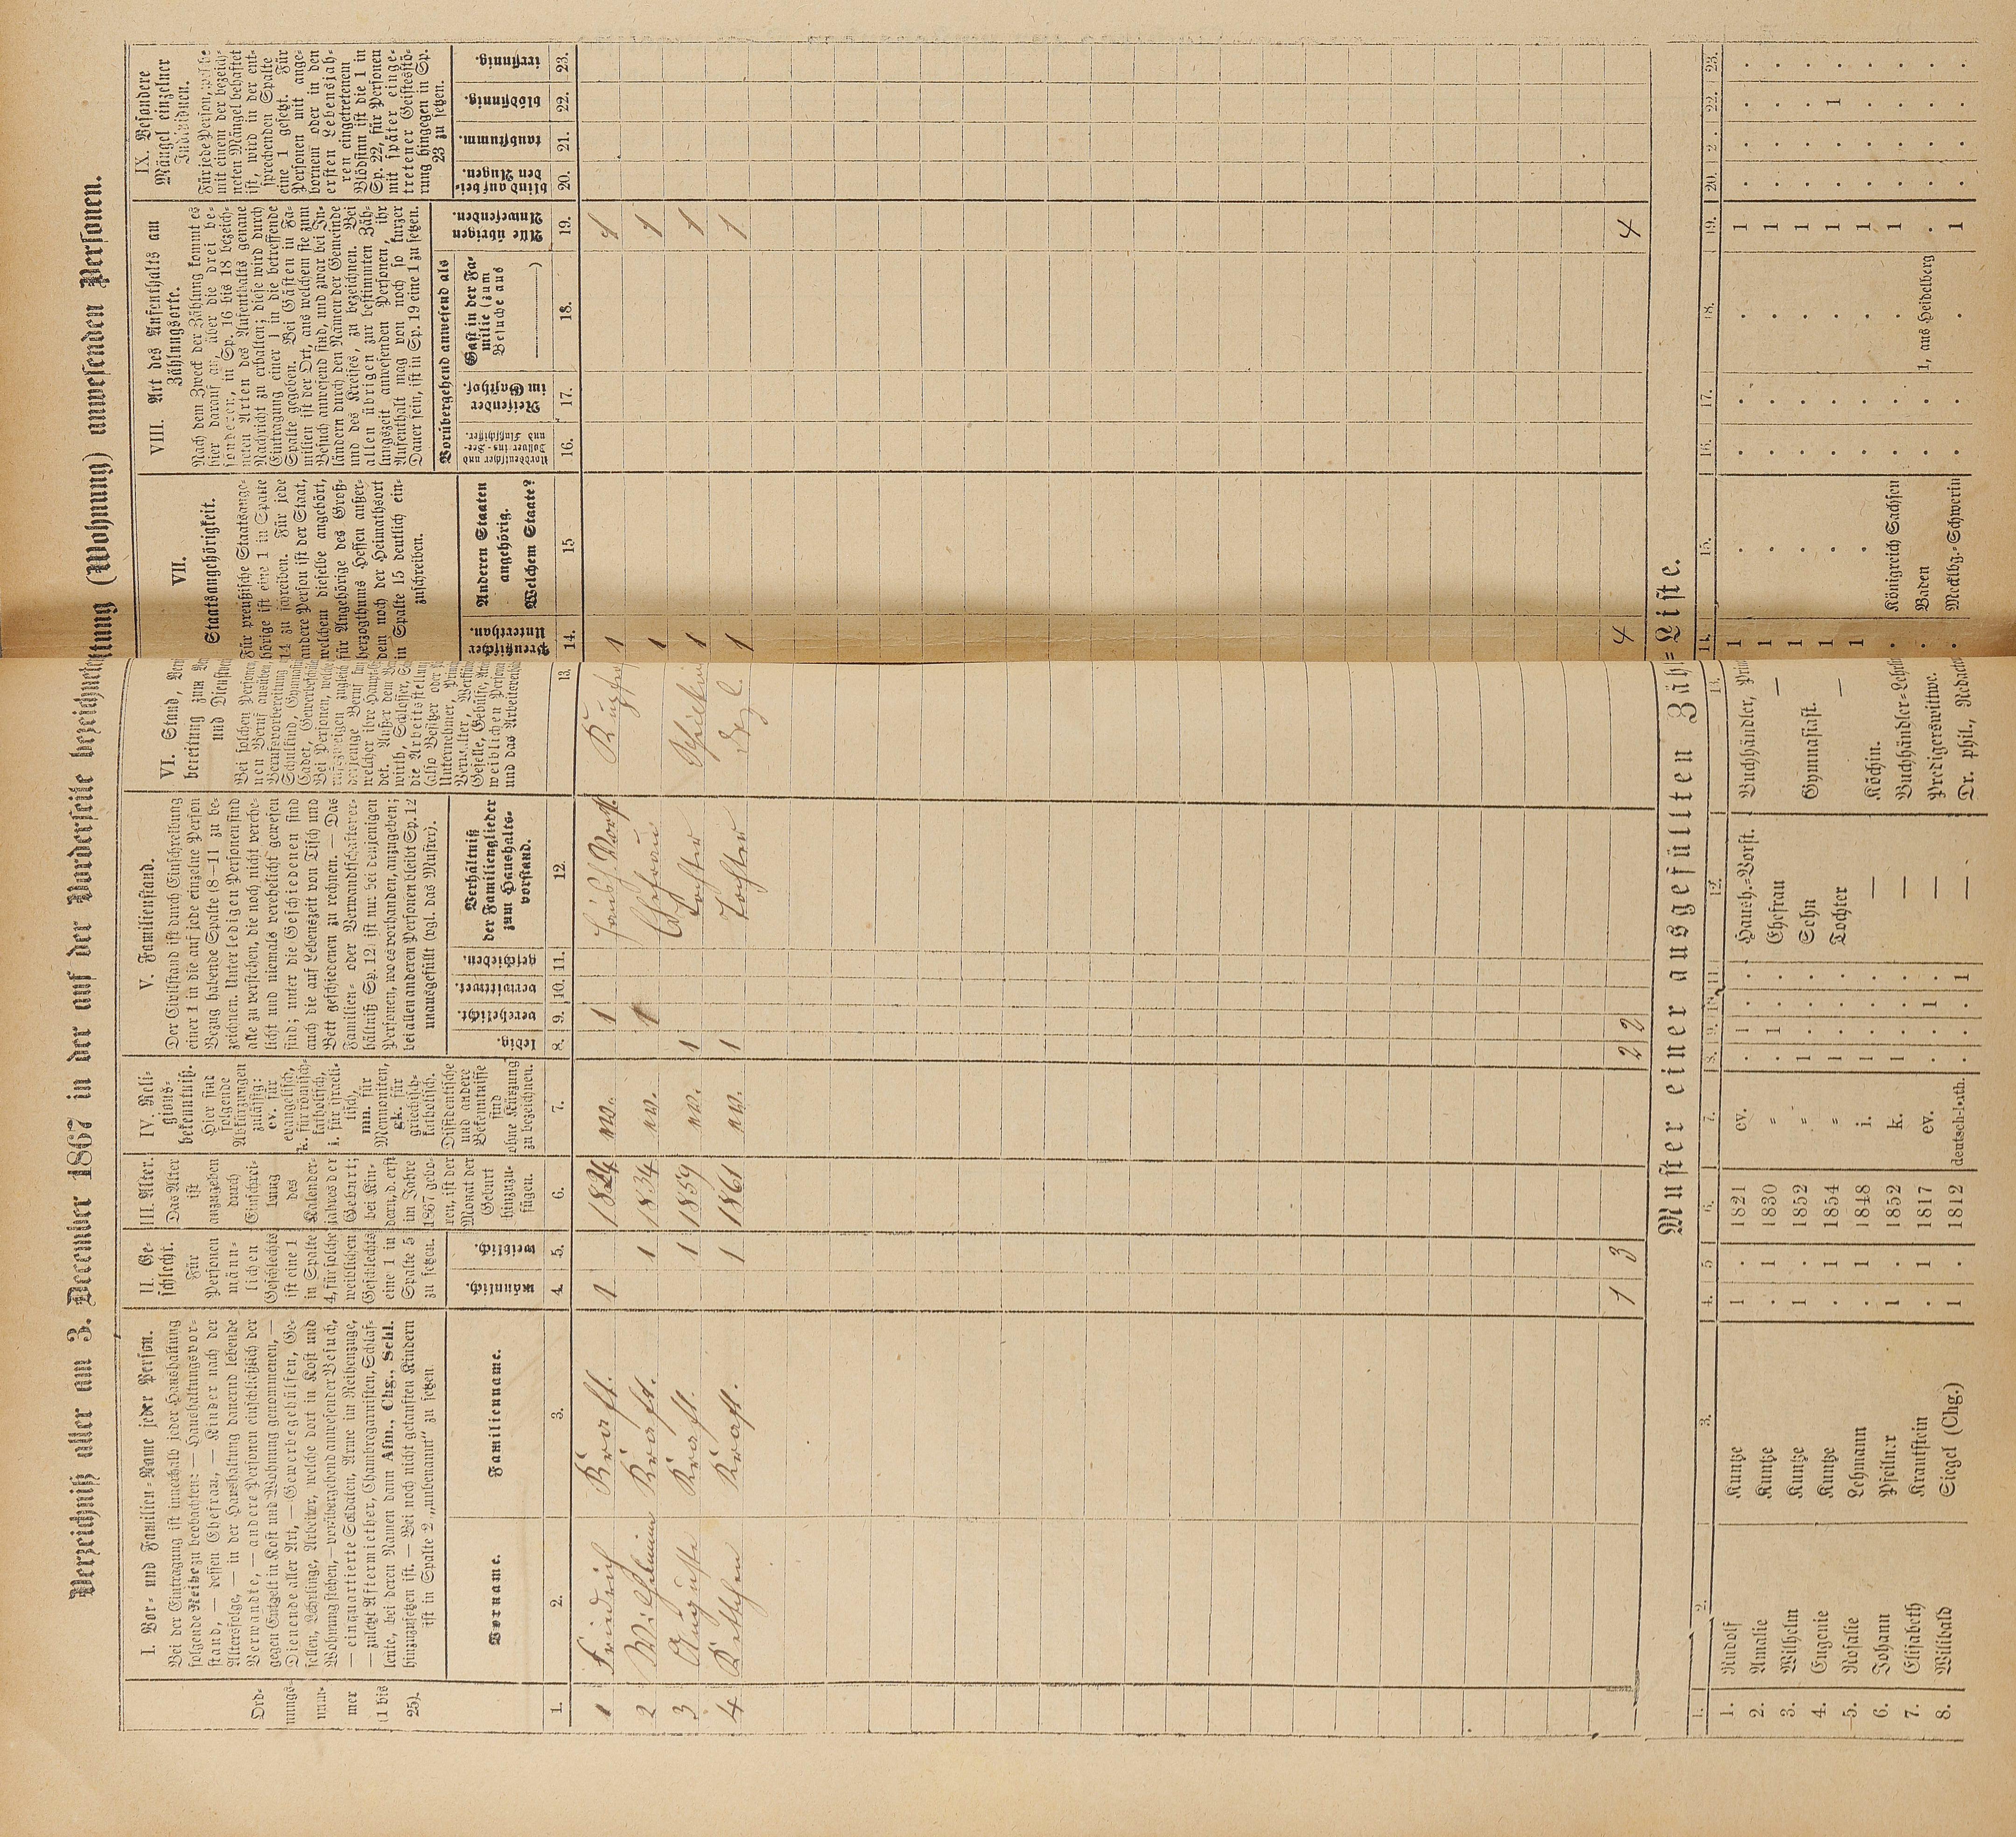 Verzeichniß aller am 3. December 1867 in der auf der Vorderseite bezeichneten Haushaltung (Wohnung) anwesenden Personen.
Ord-
nungs-
num-
mer
(1 bis
25).
I. Vor- und Familien-Name jeder Person.
Bei der Eintragung ist innerhalb jeder Haushaltung
folgende Reihe zu beobachten: — Haushaltungsvor-
stand, — dessen Ehefrau, — Kinder nach der
Altersfolge, — in der Haushaltung dauernd lebende
Verwandte, — andere Personen einschließlich der
gegen Entgelt in Kost und Wohnung genommenen, —
Dienende aller Art, — Gewerbegehülfen, Ge-
sellen, Lehrlinge, Arbeiter, welche dort in Kost und
Wohnung stehen, — vorübergehend anwesender Besuch,
— einquartierte Soldaten, Arme im Reihenzuge,
— zuletzt Aftermiether, Chambregarnisten, Schlaf-
leute, bei deren Namen dann Afm., Chg., Schl.
hinzuzusetzen ist. — Bei noch nicht getauften Kindern
ist in Spalte 2 „unbenannt" zu setzen
Vorname.
Familienname.
II. Ge-
schlecht.
Für
Personen
männ-
lichen
Geschlechts
ist eine 1
in Spalte
4, für solche
weiblichen
Geschlechts
eine 1 in
Spalte 5
zu setzen.
männlich.
weiblich.
III. Alter.
Das Alter
ist
anzugeben
durch
Einschrei-
bung
des
Kalender-
jahres der
Geburt;
bei Kin-
dern, d. erst
im Jahre
1867 gebo-
ren, ist der
Monat der
Geburt
hinzuzu-
fügen.
IV. Reli-
gions-
bekenntniß.
Hier sind
folgende
Abkürzungen
zulässig:
ev. für
evangelisch,
k. für römisch-
katholisch,
i. für israeli-
tisch,
mn. für
Mennoniten,
gk. für
griechisch-
katholisch.
Dissidentische
und andere
Bekenntnisse
sind
ohne Kürzung
zu bezeichnen.
V. Familienstand.
Der Civilstand ist durch Einschreibung
einer 1 in die auf jede einzelne Person
Bezug habende Spalte (8—11 zu be-
zeichnen. Unter ledigen Personen sind
alle zu verstehen, die noch nicht verehe-
licht und niemals verehelicht gewesen
sind; unter die Geschiedenen sind
auch die auf Lebenszeit von Tisch und
Bett geschiedenen zu rechnen. — Das
Familien- oder Verwandtschaftsver-
hältniß Sp. 12 ist nur bei denjenigen
Personen, wo es vorhanden, anzugeben;
bei allen anderen Personen bleibt Sp. 12
unausgefüllt (vgl. das Muster).
ledig.
verehelicht.
verwittwet.
geschieden.
Verhältniß
der Familienglieder
zum Haushalts-
vorstand.
VI. Stand,
bereitung zum
und Dienst
Bei solchen Personen
nen Beruf ausüben
Berufsvorbereitung
Schulkind, Gymnasi
Cadet, Gewerbeschül
Bei Personen, welche
derjenige Beruf
welcher ihre Haupt
det. Außer dem
wirth, Schlosser,
die Arbeitsstellung
(also Besitzer oder
Unternehmer,
Verwalter, Werkführ
Geselle, Gehülfe,
weiblichen Persone
und das Arbeitsverhält
VII.
Staatsangehörigkeit.
Für preußische Staatsange-
hörige ist eine 1 in Spalte
14 zu schreiben. Für jede
andere Person ist der Staat,
welchem dieselbe angehört,
für Angehörige des Groß-
herzogthums Hessen außer-
dem noch der Heimathsort
in Spalte 15 deutlich ein-
zuschreiben.
Preußischer
Unterthan.
Anderen Staaten
angehörig.
Welchem Staate?
VIII. Art des Aufenthalts am
Zählungsorte.
Nach dem Zweck der Zählung kommt es
hier darauf an, über die drei be-
sonderen, in Sp. 16 bis 18 bezeich-
neten Arten des Aufenthalts genaue
Nachricht zu erhalten; diese wird durch
Eintragung einer 1 in die betreffende
Spalte gegeben. Bei Gästen in Fa-
milien ist der Ort, aus welchem sie zum
Besuch anwesend sind, und zwar bei In-
ländern durch den Namen der Gemeinde
und des Kreises, zu bezeichnen. Bei
allen übrigen zur bestimmten Zäh-
lungszeit anwesenden Personen, ihr
Aufenthalt mag von noch so kurzer
Dauer sein, ist in Sp. 19 eine 1 zu setzen.
Vorübergehend anwesend als
Norddeutscher und
Zollver.ins-See-
und Flußschiffer.
Reisender
im Gasthof.
Gast in der Fa-
milie (zum
Besuche aus
)
Alle übrigen
Anwesenden.
IX. Besondere
Mängel einzelner
Individuen.
Für jede Person, welche
mit einem der bezeich-
neten Mängel behaftet
ist, wird in der ent-
sprechenden Spalte
eine 1 gesetzt. Für
Personen mit ange-
bornem oder in den
ersten Lebensjah-
ren eingetretenem
Blödsinn ist die 1 in
Sp. 22, für Personen
mit später einge-
tretener Geistesstö-
rung hingegen in Sp.
23 zu setzen.
blind auf bei-
den Augen.
taubstumm.
blödsinnig.
irrsinnig.
1. 2. 3. 4. 5. 6. 7. 8. 9. 10. 11. 12. 13. 14. 15 16. 17. 18. 19. 20. 21. 22. 23.
1 Friedrich Kraft. 1 1824 ev. 1 Haush. Vorst. 1 1
2 Wilhelmine Kraft. 1 1834 ev. 1 Ehefrau 1 1
3 Auguste Kraft. 1 1859 ev. 1 Tochter 1 1
4 Kettchen Kraft. 1 1861 ev. 1 Tochter 1 1
1 3 2 2 4 4
Muster einer ausgefüllten Zähl-Liste.
1. 2. 3. 4. 5 6. 7. 8. 9. 10. 11. 12. 13. 14. 15. 16. 17. 18. 19. 20. 2. 22. 23.
1. Rudolf Kuntze 1 . 1821 ev. . 1 . . Haush.-Vorst. Buchhändler, 1 . . . . 1 . . . .
2. Amalie Kuntze . 1 1830 = . 1 . . Ehefrau — 1 . . . . 1 . . . .
3. Wilhelm Kuntze 1 . 1852 = 1 . . . Sohn Gymnasiast. 1 . . . . 1 . . . .
4. Eugenie Kuntze . 1 1854 = 1 . . . Tochter — 1 . . . . 1 . . 1 .
5. Rosalie Lehmann . 1 1848 i. 1 . . . — Köchin. 1 . . . . 1 . . . .
6. Johann Pfeilner 1 . 1852 k. 1 . . . — Buchhändler-Lehrli . Königreich Sachsen . . . 1 . . . .
7. Elisabeth Krautstein . 1 1817 ev. . . 1 . — Predigerswittwe. . Baden . . 1, aus Heidelberg . . . . .
8. Wilibald Siegel (Chg.) 1 . 1812 deutsch-kath. . . . 1 — Dr. phil., Redacte . Mecklbg.-Schwerin . . . 1 . . . .